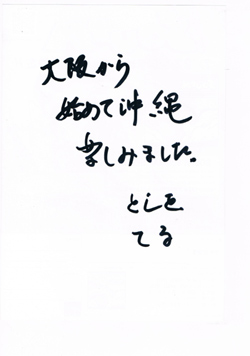 大阪から
始めて沖縄
楽しみました。
としを
てる